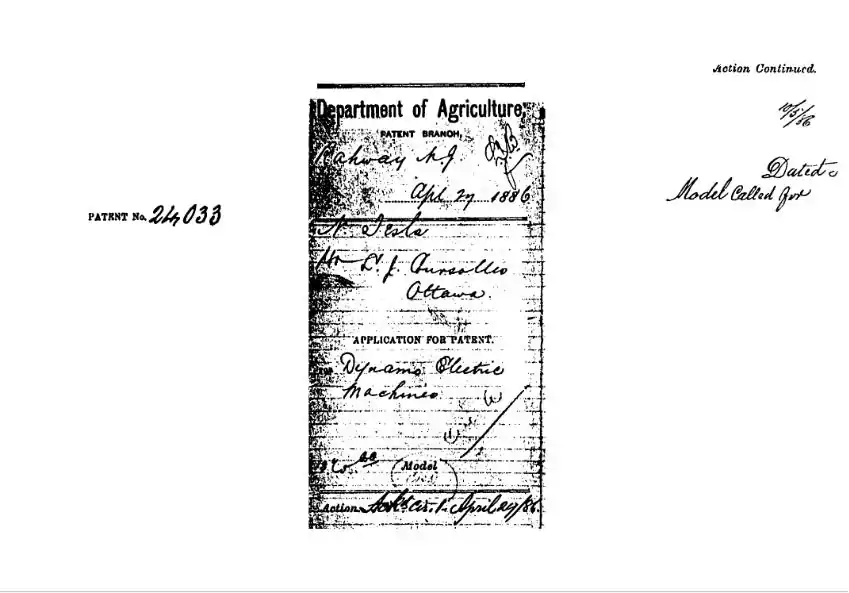 Action Continued.
10/5/86
Dated
Model Called for
PATENT No. 24033
Department of Agriculture,
PATENT BRANCH,
Rahway N.J.
Apl. 27 1886
N. Tesla
Ottawa.
APPLICATION FOR PATENT.
Dynamo Electric
Machines
Model
Action April 29/86.